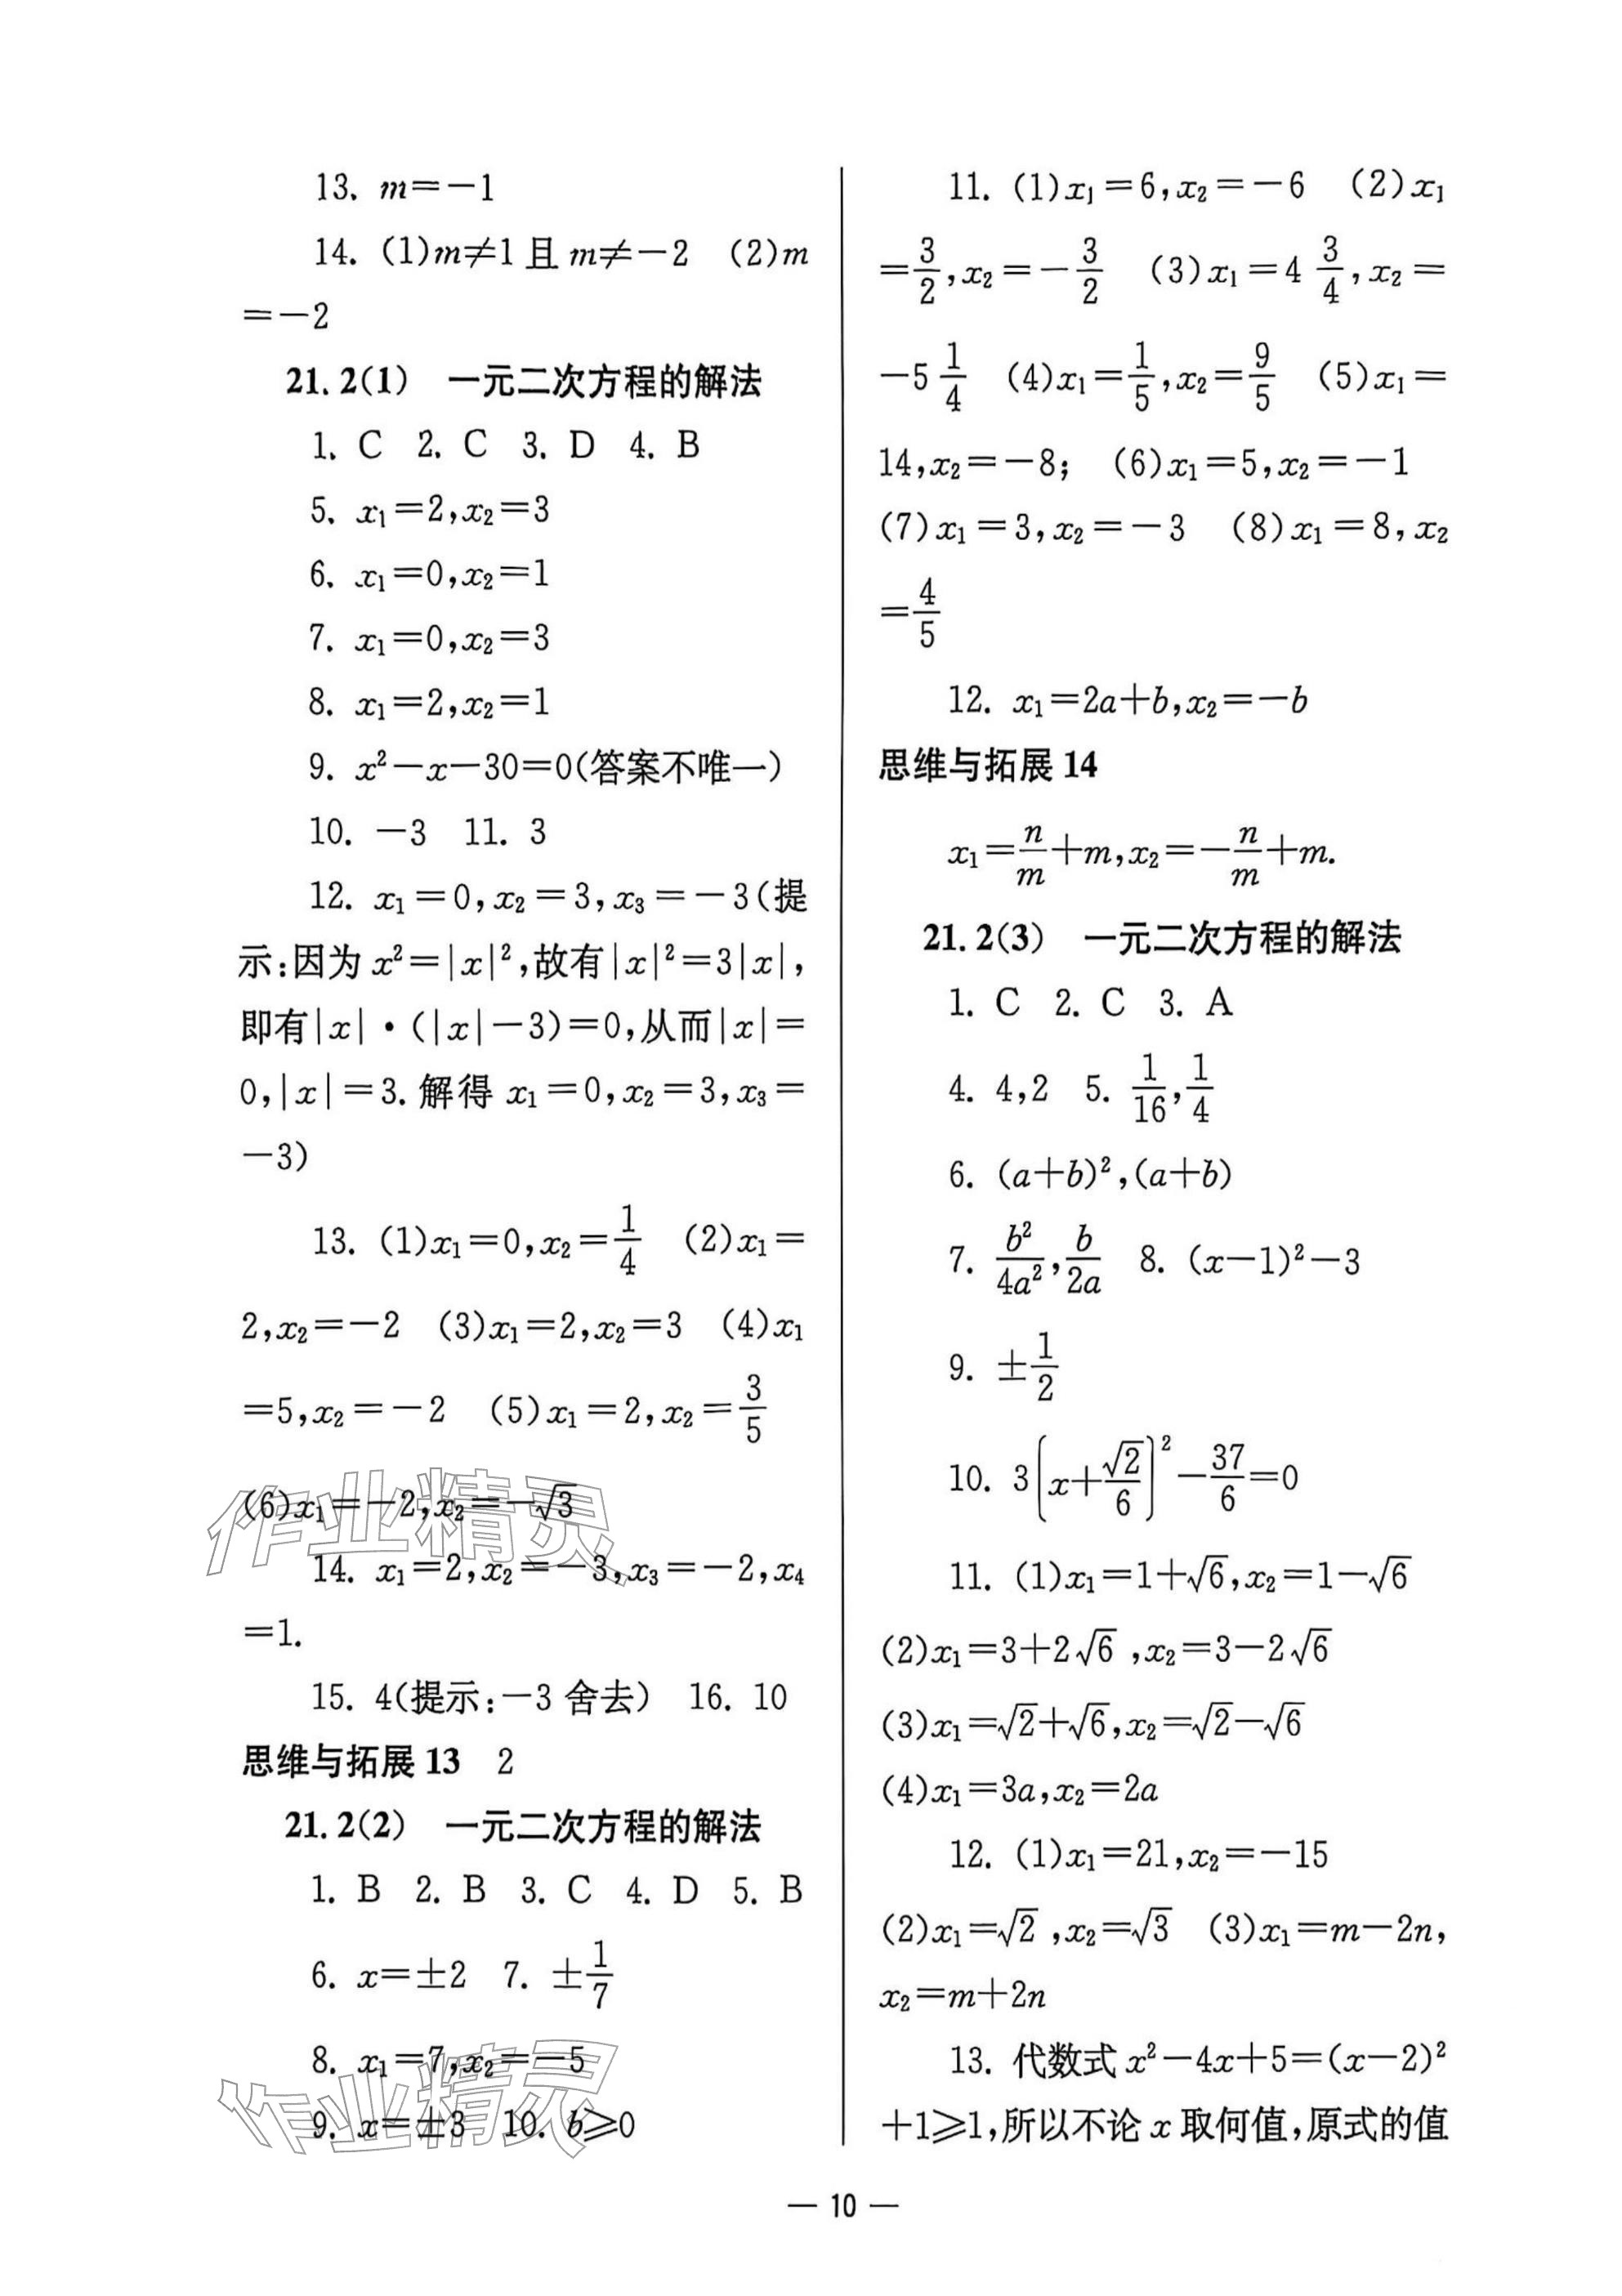 13. m=-1
14. (1)m≠1 且 m≠-2 (2)m
=-2
21.2(1) 一元二次方程的解法
1. C 2. C 3. D 4. B
5. x₁=2,x₂=3
6. x₁=0,x₂=1
7. x₁=0,x₂=3
8. x₁=2,x₂=1
9. x²-x-30=0(答案不唯一)
10. -3 11. 3
12. x₁=0,x₂=3,x₃=-3(提
示:因为 x²=|x|²,故有|x|²=3|x|,
即有|x|·(|x|-3)=0,从而|x|=
0,|x|=3.解得 x₁=0,x₂=3,x₃=
-3)
13. (1)x₁=0,x₂=1/4 (2)x₁=
2,x₂=-2 (3)x₁=2,x₂=3 (4)x₁
=5,x₂=-2 (5)x₁=2,x₂=3/5
(6)x₁=-2,x₂=-√3
14. x₁=2,x₂=-3,x₃=-2,x₄
=1.
15. 4(提示:-3 舍去) 16. 10
思维与拓展 13 2
21.2(2) 一元二次方程的解法
1. B 2. B 3. C 4. D 5. B
6. x=±2 7. ±1/7
8. x₁=7,x₂=-5
9. x=±3 10. b≥0
11. (1)x₁=6,x₂=-6 (2)x₁
=3/2,x₂=-3/2 (3)x₁=4 3/4,x₂=
-5 1/4 (4)x₁=1/5,x₂=9/5 (5)x₁=
14,x₂=-8; (6)x₁=5,x₂=-1
(7)x₁=3,x₂=-3 (8)x₁=8,x₂
=4/5
12. x₁=2a+b,x₂=-b
思维与拓展 14
x₁=n/m+m,x₂=-n/m+m.
21.2(3) 一元二次方程的解法
1. C 2. C 3. A
4. 4,2 5. 1/16,1/4
6. (a+b)²,(a+b)
7. b²/4a²,b/2a 8. (x-1)²-3
9. ±1/2
10. 3(x+√2/6)²-37/6=0
11. (1)x₁=1+√6,x₂=1-√6
(2)x₁=3+2√6,x₂=3-2√6
(3)x₁=√2+√6,x₂=√2-√6
(4)x₁=3a,x₂=2a
12. (1)x₁=21,x₂=-15
(2)x₁=√2,x₂=√3 (3)x₁=m-2n,
x₂=m+2n
13. 代数式 x²-4x+5=(x-2)²
+1≥1,所以不论 x 取何值,原式的值
— 10 —
作业精灵
作业精灵